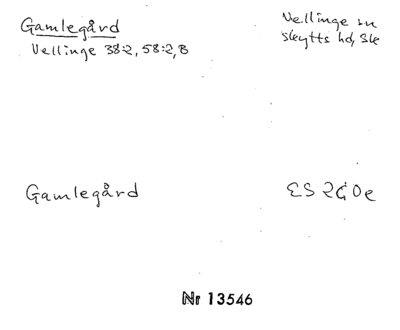 Gamlegård
Vellinge 38:2, 58:2, B
Vellinge sn
Skytts hd, Sk
Gamlegård
ES 2G0e
Nr 13546